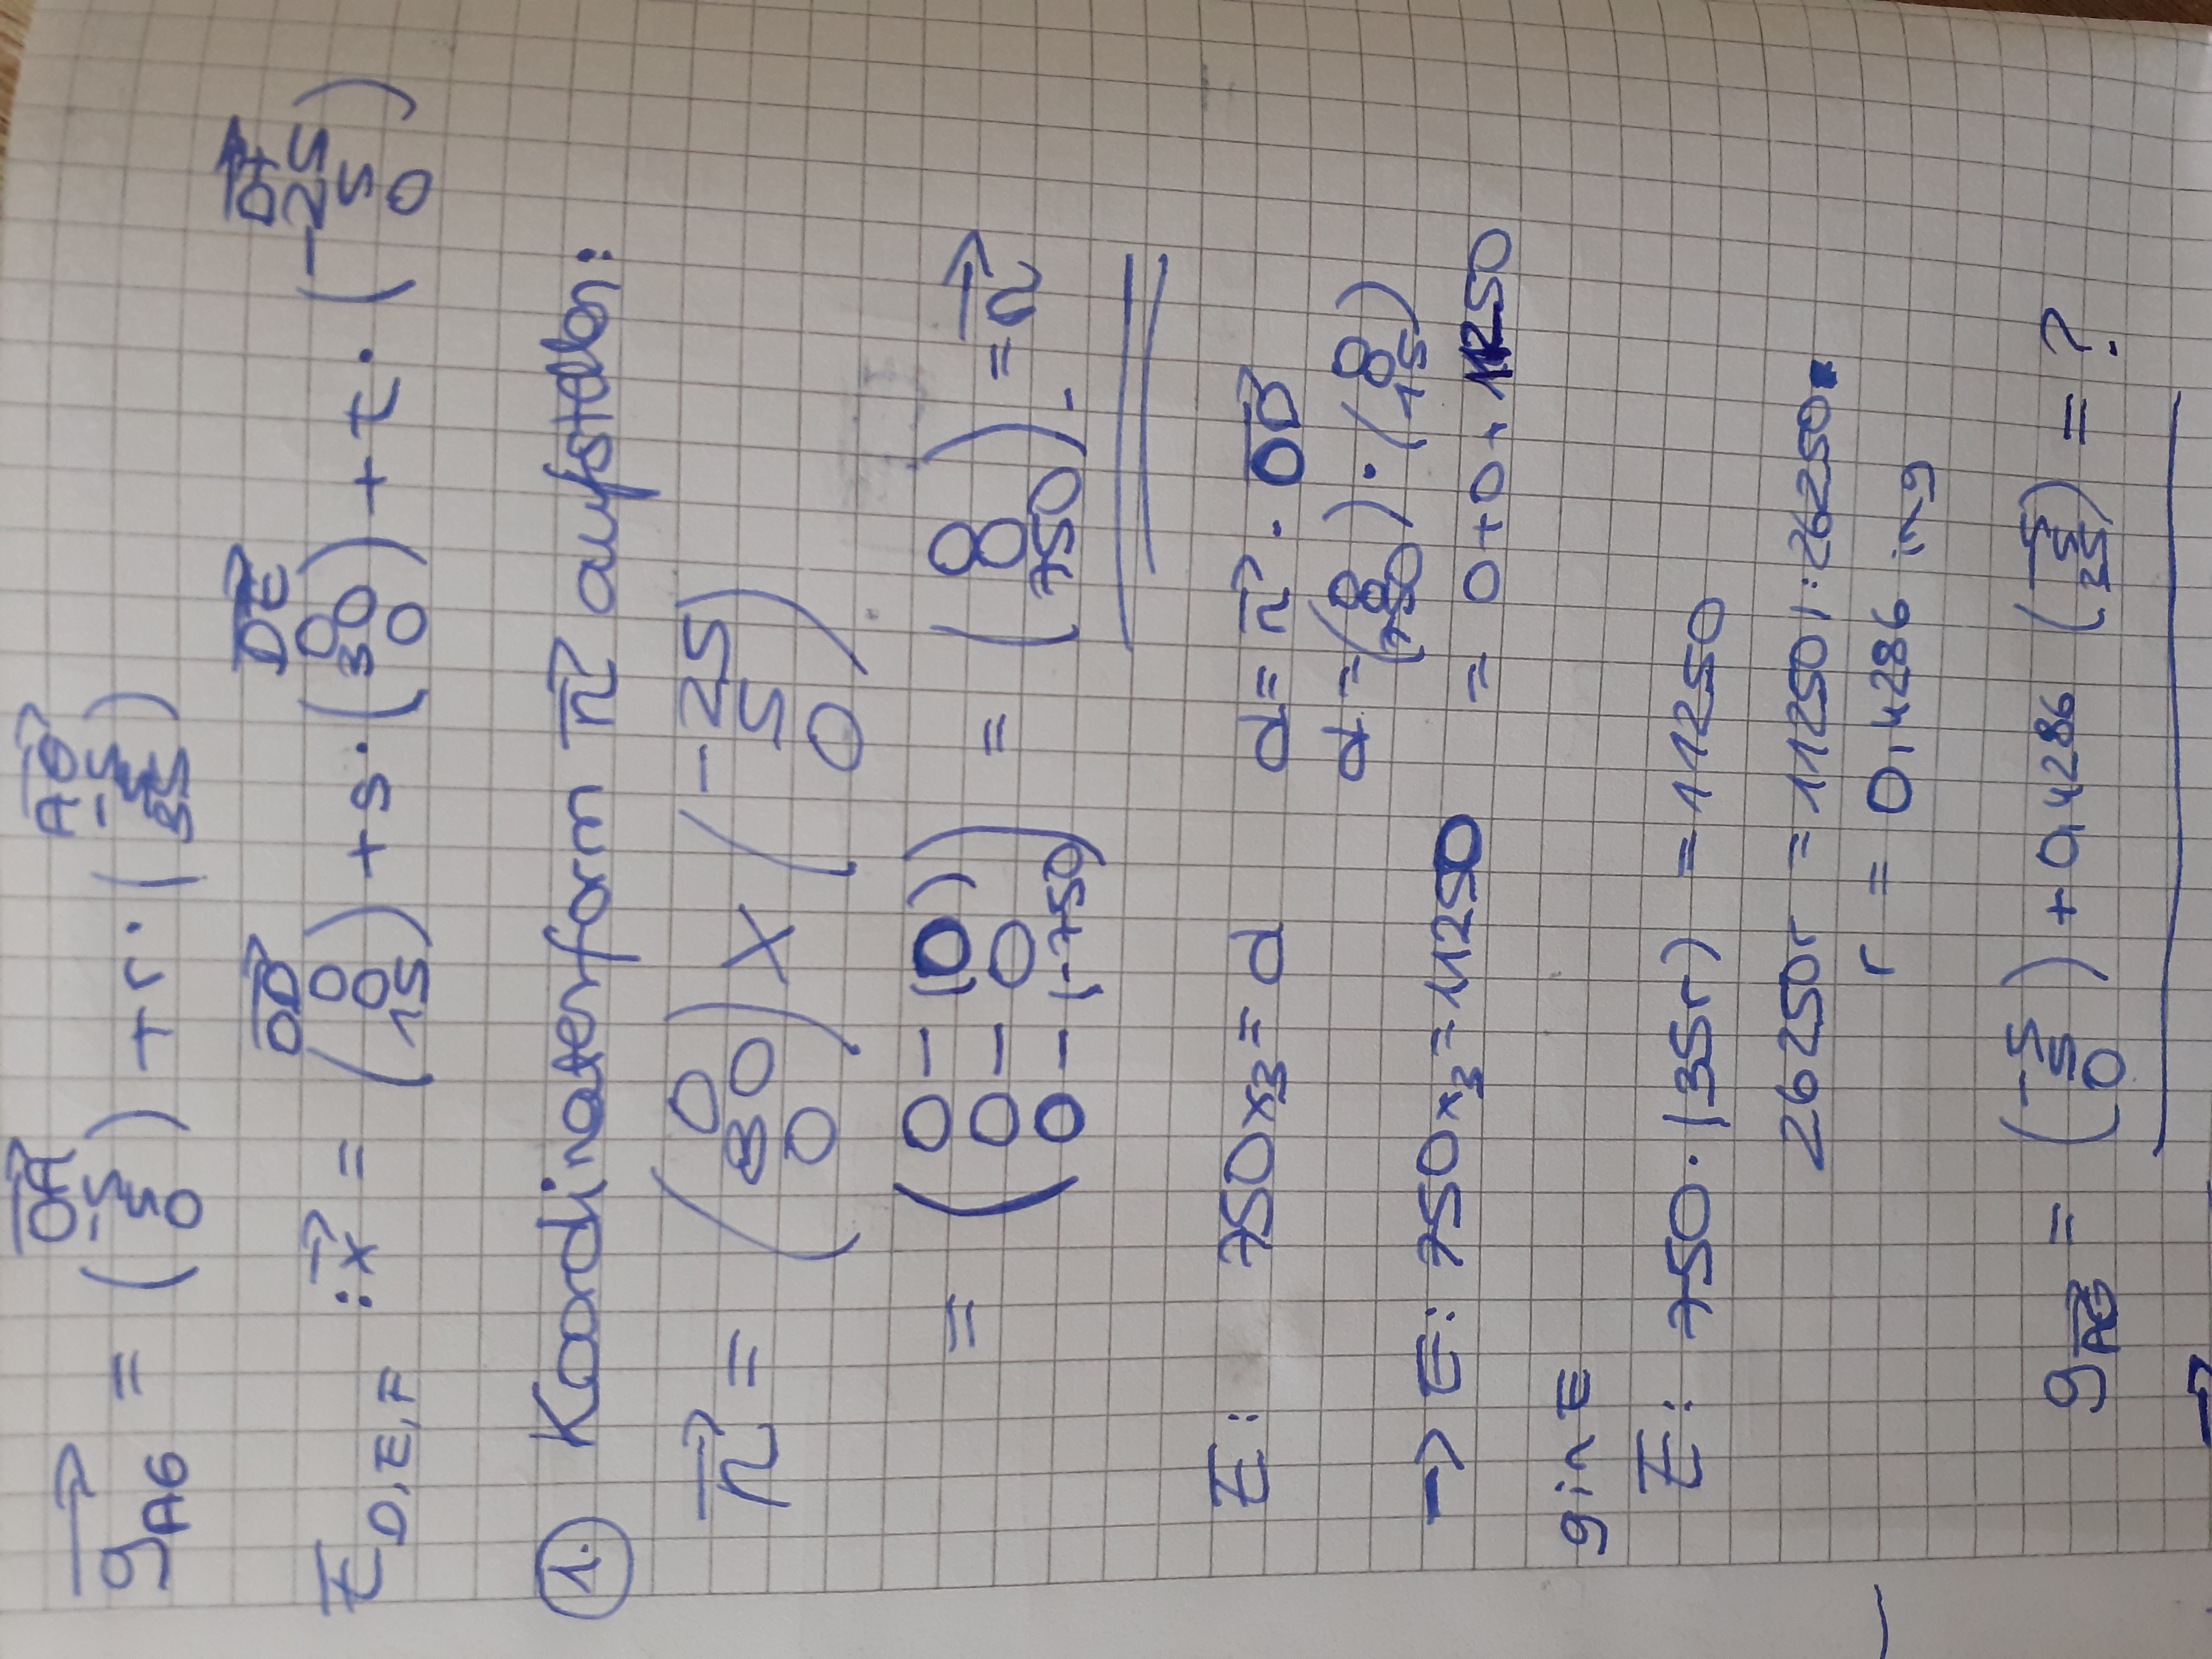 OA AG
g AG = (-5 5 0) + r · (-5 5 35)
OD DE DF
E D,E,F : x = (0 0 15) + s · (0 30 0) + t · (-25 5 0)
1. Koordinatenform n aufstellen:
n = (0 30 0) x (-25 5 0)
= (0 - (0) 0 - 0 0 - (-750)) = (0 0 750) = n
E: 750x3 = d d = n · OD
d = (0 0 750) · (0 0 15)
-> E: 750x3 = 11250 = 0 + 0 + 11250
g in E
E: 750 · (35r) = 11250
26250r = 11250 | : 26250
r = 0,4286 in g
g AG = (-5 5 0) + 0,4286 (-5 5 35) = ?